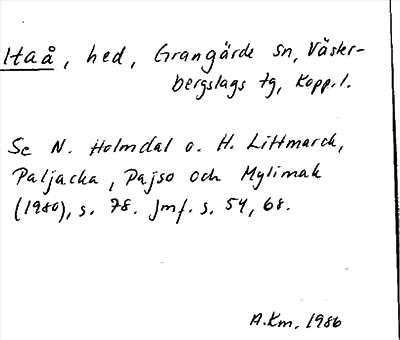 Itaå, hed, Grangärde sn, Väster-
bergslags tg, Kopp.l.
Se N. Holmdal o. H. Littmarck,
Paljacka, Pajso och Mylimak
(1980), s. 78. Jmf. s. 54, 68.
A.Km. 1986